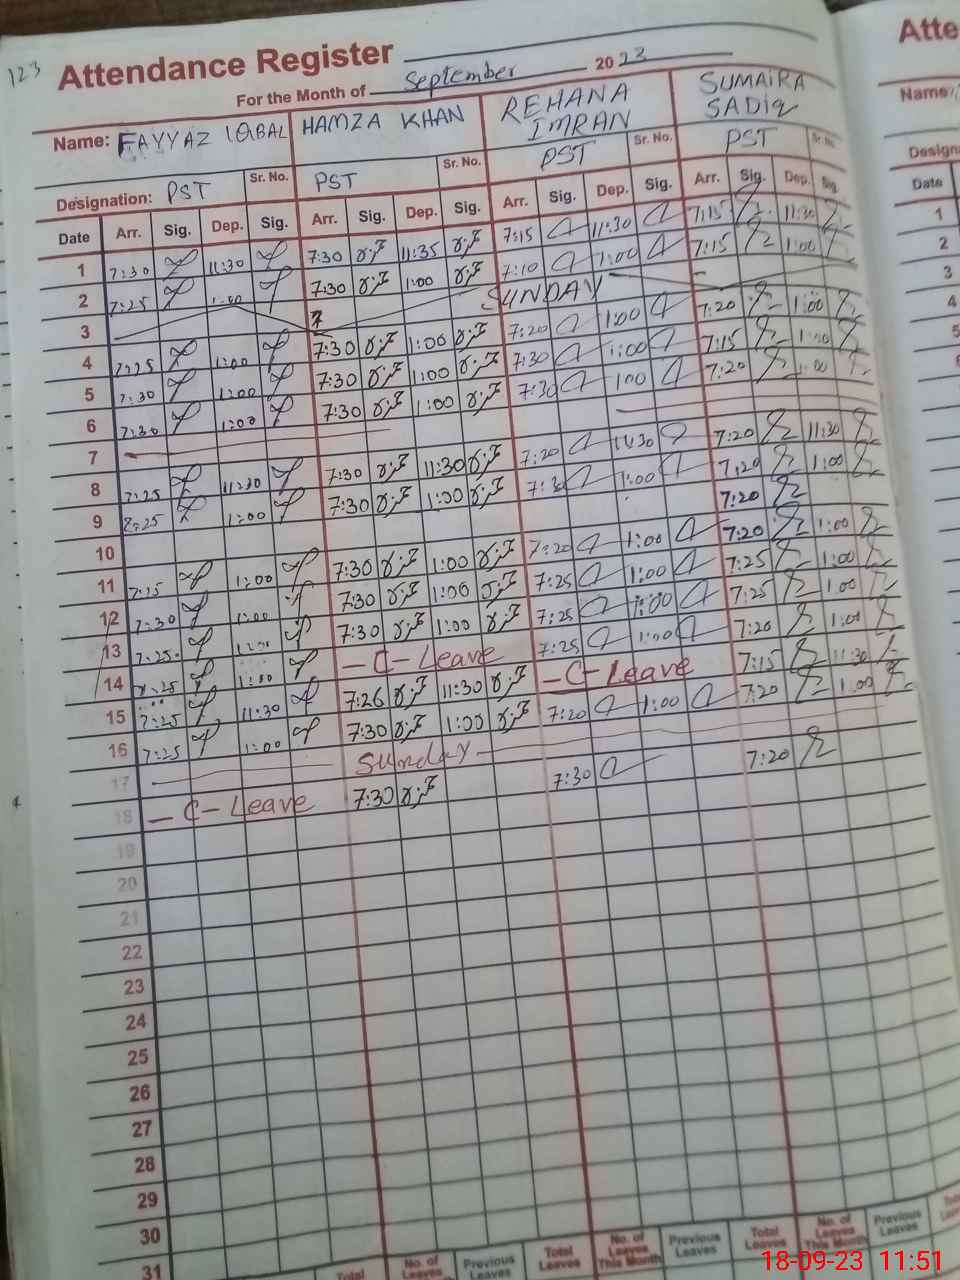 123
Attendance Register
For the Month of September 2023
Name: FAYYAZ IQBAL HAMZA KHAN REHANA IMRAN SUMAIRA SADIQ
Designation: PST Sr. No. PST Sr. No. PST Sr. No. PST
Date Arr. Sig. Dep. Sig. Arr. Sig. Dep. Sig. Arr. Sig. Dep. Sig. Arr. Sig. Dep. Sig.
1 7:30 11:30 7:30 11:35 7:15 11:30 7:15 11:30
2 7:25 1:00 7:30 1:00 7:10 1:00 7:15 1:00
3 SUNDAY
4 1:00 7:30 1:00 7:20 1:00 7:20 1:00
5 7:30 1:00 7:30 1:00 7:30 1:00 7:15
6 7:30 1:00 7:30 1:00 7:30 100 7:20 1:00
7
8 7:25 11:30 7:30 11:30 7:20 11:30 7:20 11:30
9 1:00 7:30 1:00 1:00 7:20 1:00
10 7:20
11 7:15 1:00 7:30 1:00 7:20 1:00 7:20 1:00
12 7:30 1:00 7:30 1:00 7:25 1:00 7:25 1:00
13 7:25 7:30 1:00 7:25 1:00 7:25 1:00
14 C-Leave 7:25 1:00 7:20 1:00
15 7:25 11:30 7:26 11:30 C-Leave 7:15 11:30
16 7:25 1:00 7:30 1:00 7:20 1:00 7:20 1:00
17 Sunday
18 C-Leave 7:30 7:30 7:20
19
20
21
22
23
24
25
26
27
28
29
30
31 Total No. of Leaves Previous Leaves Total Leaves No. of Leaves This Month Previous Leaves Total Leaves No. of Leaves This Month Previous Leaves
Atte
Name:
Design
Date
1
2
3
4
5
18-09-23 11:51